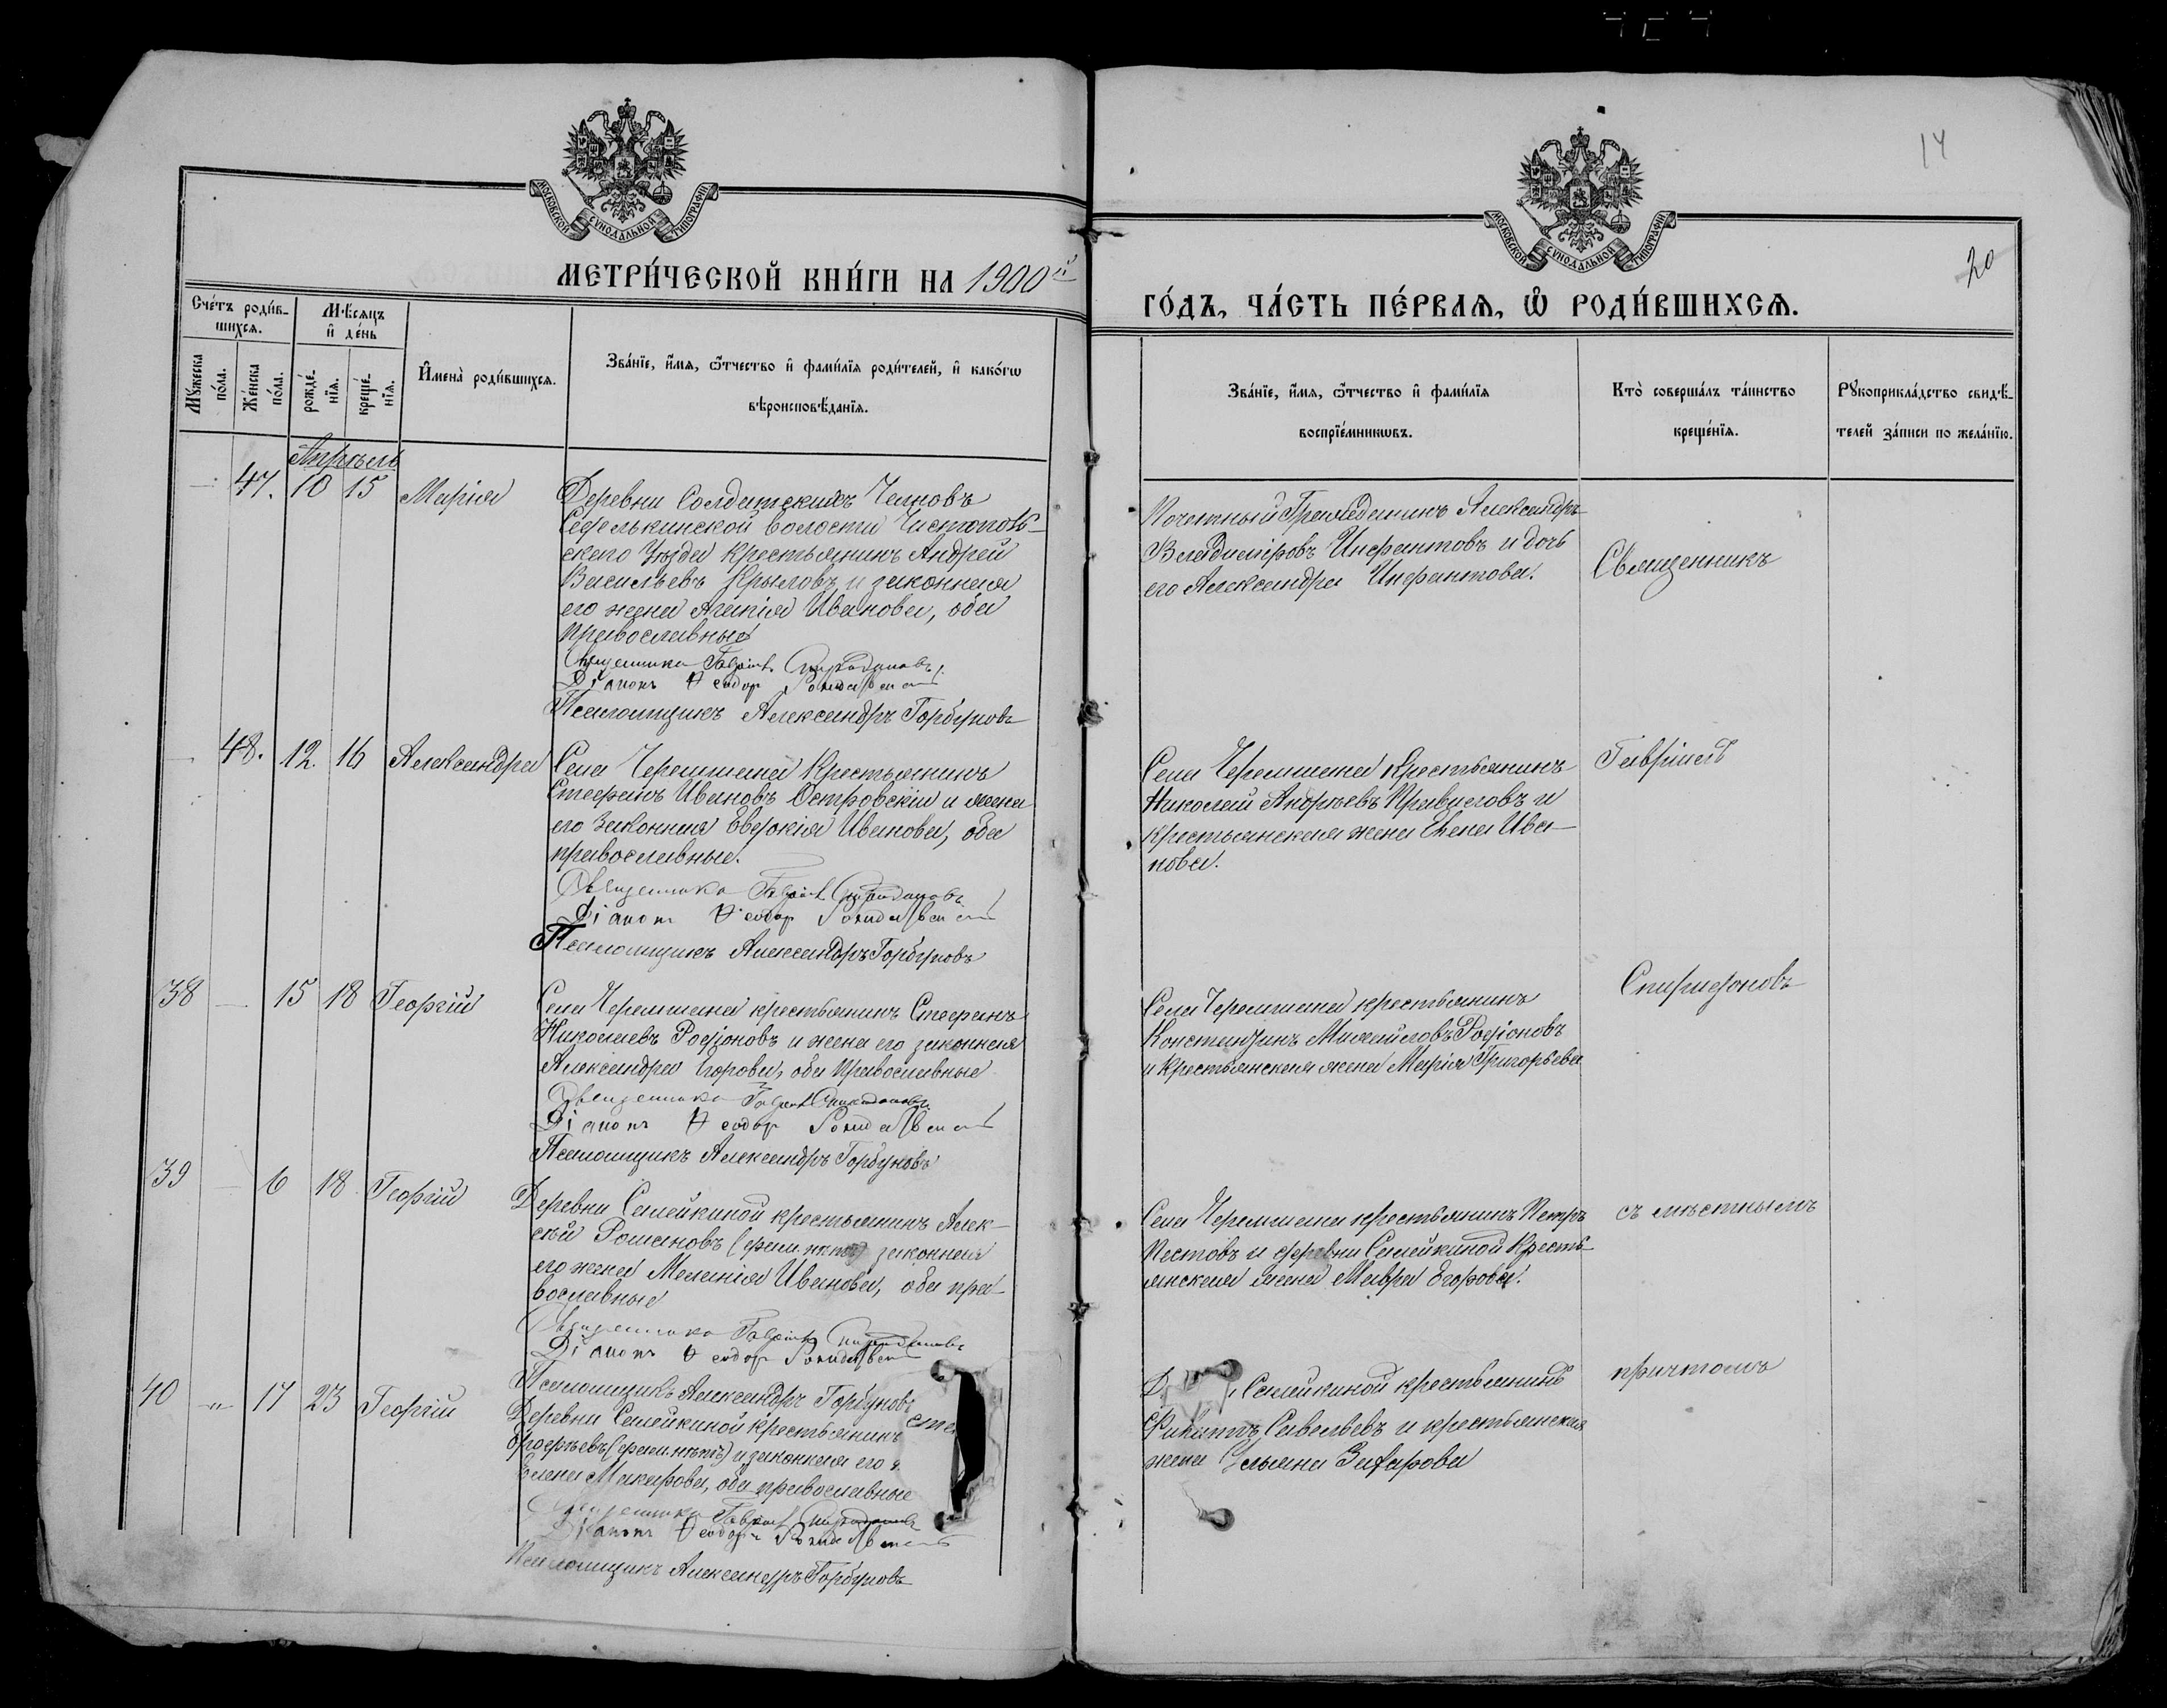 14
20
МОСКОВСКОЙ СѴНОДАЛЬНОЙ ТИПОГРАФІИ
МОСКОВСКОЙ СѴНОДАЛЬНОЙ ТИПОГРАФІИ
МЕТРИ́ЧЕСКОЙ КНИ́ГИ НА 1900й
ГО́ДЪ, ЧА́СТЬ ПЕ́РВАЯ, Ѡ РОДИ́ВШИХСЯ.
Сче́тъ роди́в-
шихся.
Мѣсяцъ
и де́нь
Мꙋжеска
по́ла.
Же́нска
по́ла.
рожде́-
нїя.
креще́-
нїя.
Имена̀ роди́вшихся.
Зва́нїе, и́мя, ѻ́тчество и фами́лїя роди́телей, и како́гѡ
вѣроисповѣ́данїя.
Зва́нїе, и́мя, ѻ́тчество и фами́лїя
воспрїе́мникѡвъ.
Кто̀ соверша́лъ та́инство
креще́нїя.
Рꙋкоприкла́дство свидѣ́-
телей за́писи по жела́нїю.
Апрѣль
47. 10 15 Марія
Деревни Солдатскихъ Челновъ
Седелькинской волости Чистополь-
скаго Уѣзда крестьянинъ Андрей
Васильевъ Крыловъ и законная
его жена Агапія Иванова, оба
православные
Священникъ Гавріилъ Спиридоновъ
Діаконъ Ѳеодоръ Рождественскій
Псаломщикъ Александръ Горбуновъ
Почетный Гражданинъ Александръ
Владиміровъ Инфантовъ и дочь
его Александра Инфантова.
Священникъ
48. 12. 16 Александра
Села Черемшана Крестьянинъ
Стефанъ Ивановъ Островскій и жена
его Законная Евдокія Иванова, оба
православные.
Священникъ Гавріилъ Спиридоновъ
Діаконъ Ѳеодоръ Рождественскій
Псаломщикъ Александръ Горбуновъ
Села Черемшана Крестьянинъ
Николай Андреевъ Правиловъ и
крестьянская жена Елена Ива-
нова.
Гавріилъ
38 15 18 Георгій
Села Черемшана крестьянинъ Стефанъ
Николаевъ Родіоновъ и жена его законная
Александра Егорова, оба Православные
Священникъ Гавріилъ Спиридоновъ
Діаконъ Ѳеодоръ Рождественскій
Псаломщикъ Александръ Горбуновъ
Села Черемшана крестьянинъ
Константинъ Михайловъ Родіоновъ
и Крестьянская жена Марія Григорьева
Спиридоновъ
39 6 18 Георгій
Деревни Семейкиной крестьянинъ Алек-
сѣй Романовъ (фам. нѣтъ) законная
его жена Меланія Иванова, оба пра-
вославные
Священникъ Гавріилъ Спиридоновъ
Діаконъ Ѳеодоръ Рождественскій
Псаломщикъ Александръ Горбуновъ
Села Черемшана крестьянинъ Петръ
Пестовъ и деревни Семейкиной Кресть-
янская жена Мавра Егорова.
съ мѣстнымъ
40 „ 17 23 Георгій
Деревни Семейкиной Крестьянинъ Сте
Ерофѣевъ (фам. нѣтъ) и законная его ж
Елена Макарова, оба православные
Священникъ Гавріилъ Спиридоновъ
Діаконъ Ѳеодоръ Рождественскій
Псаломщикъ Александръ Горбуновъ
Д Семейкиной крестьянинъ
Савельевъ и крестьянская
жена Ульяна Захарова
причтомъ